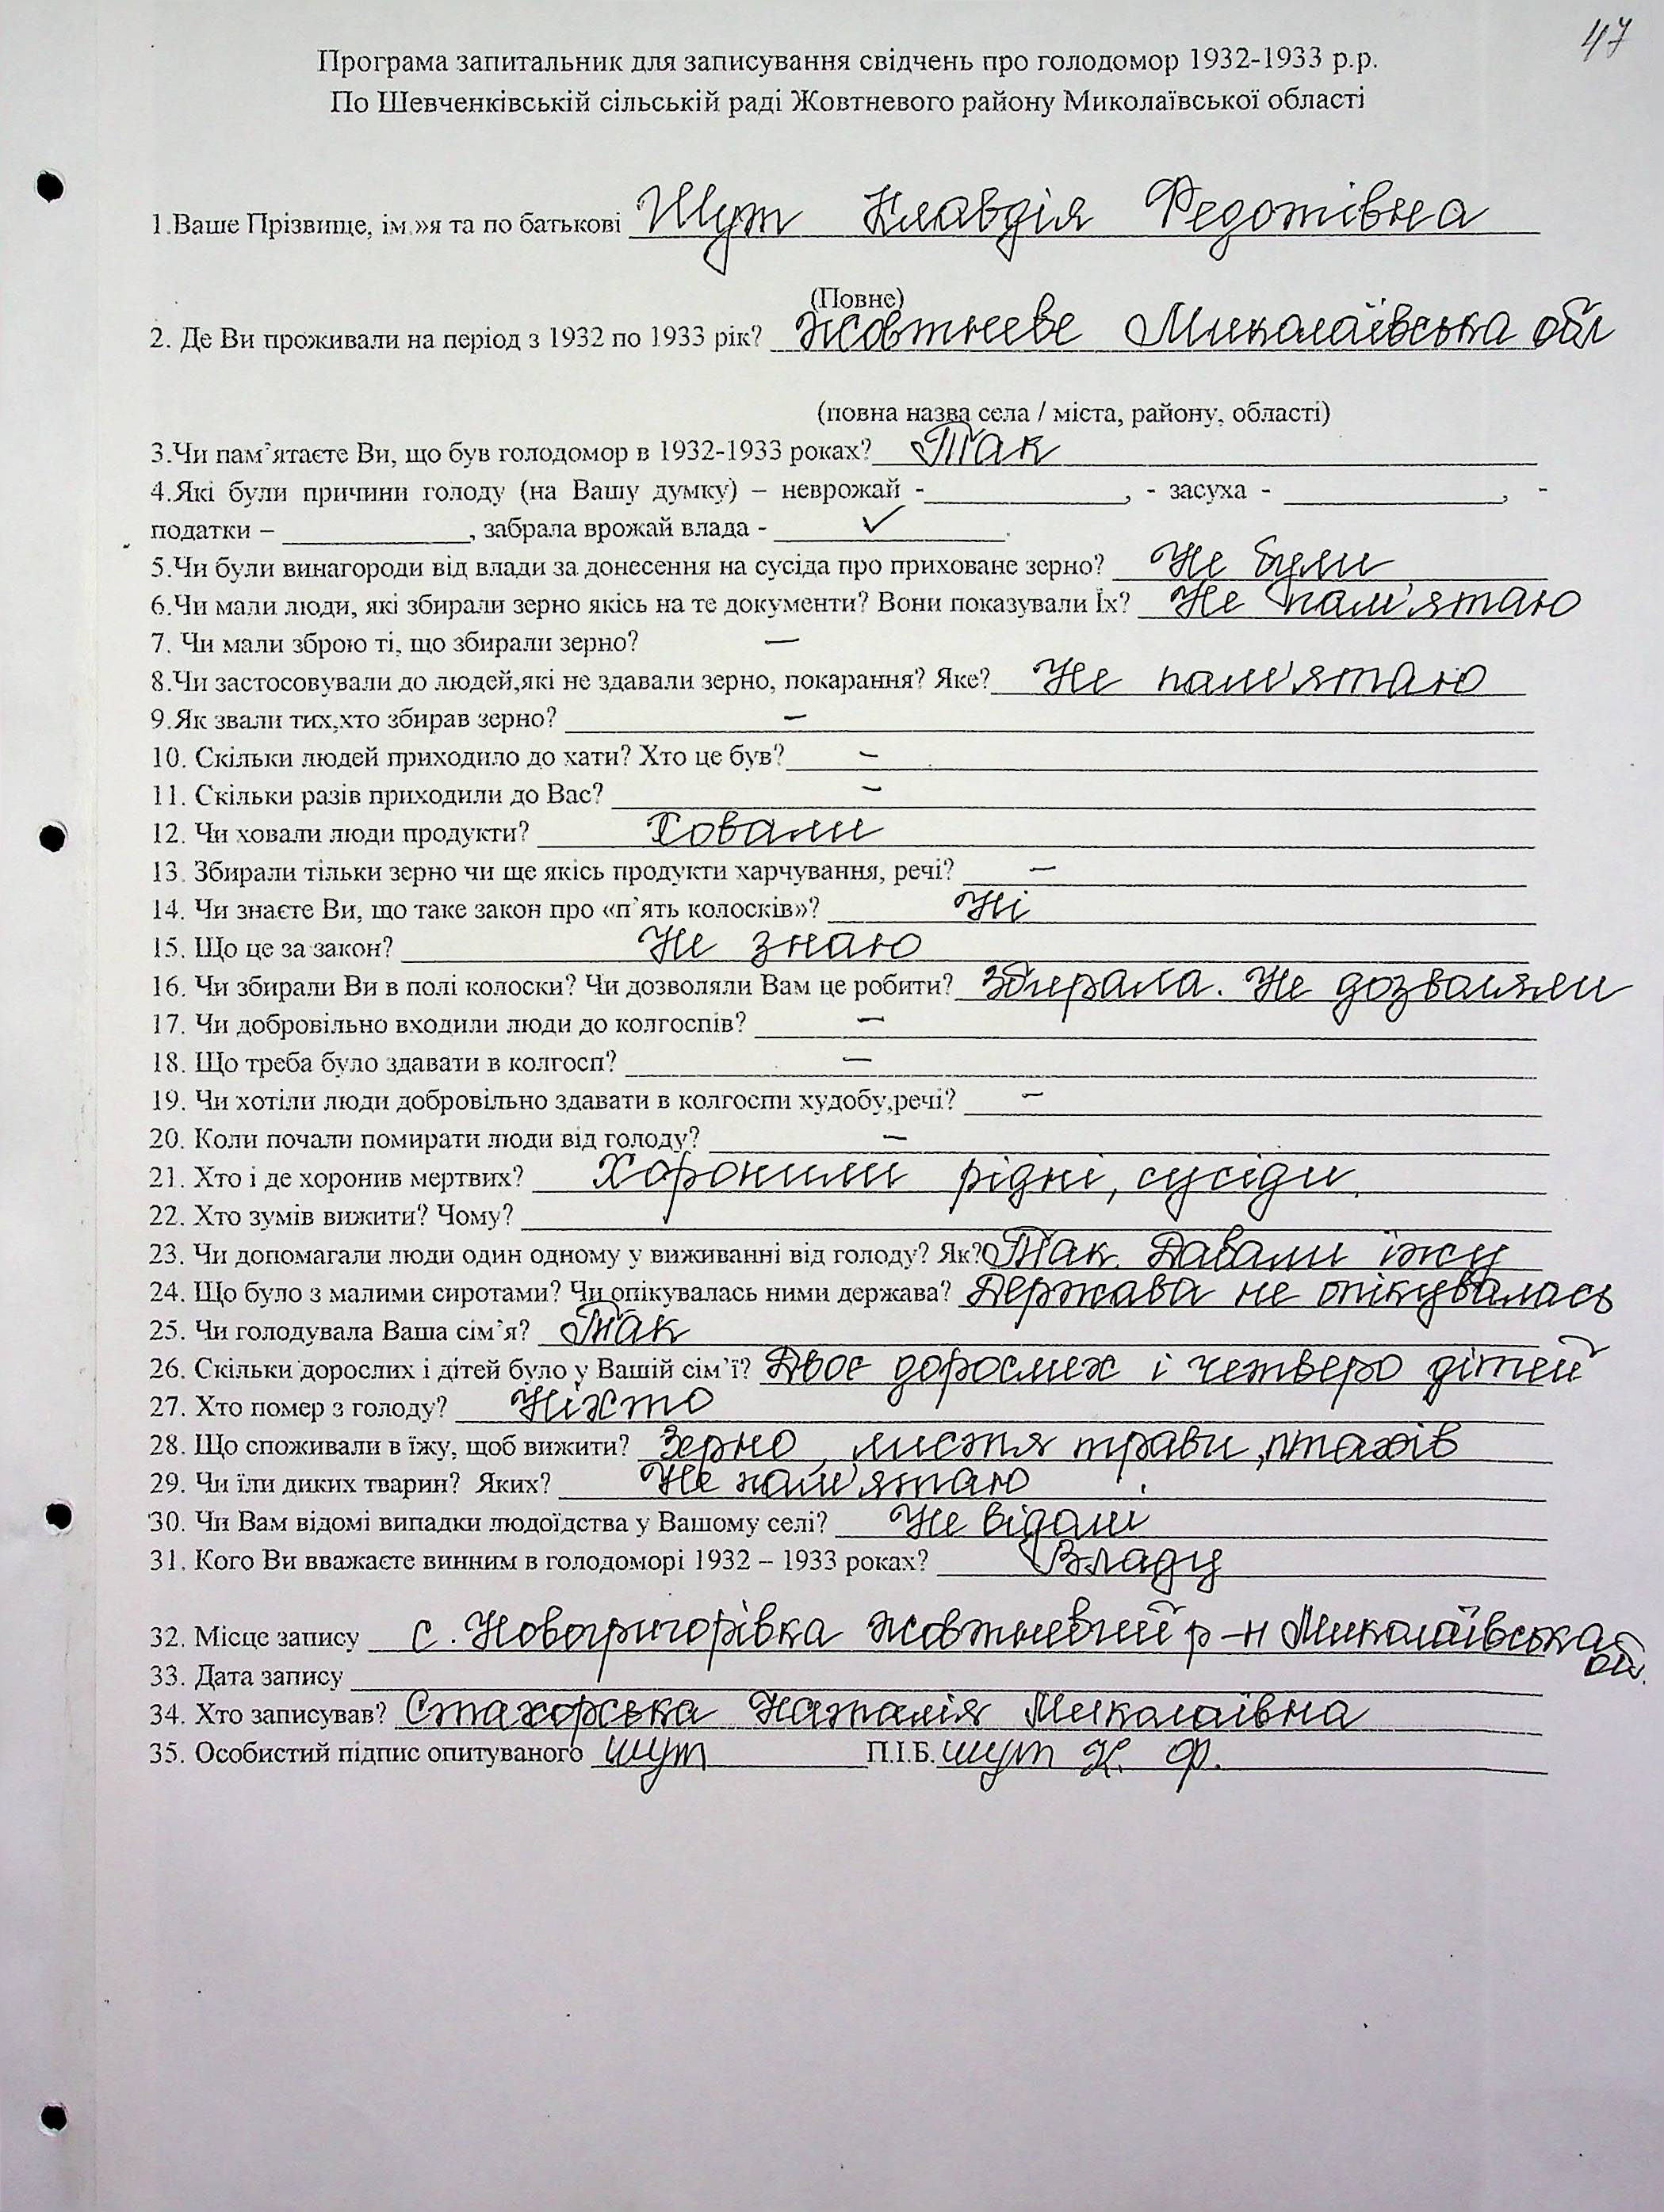 47
Програма запитальник для записування свідчень про голодомор 1932-1933 р.р.
По Шевченківській сільській раді Жовтневого району Миколаївської області
1.Ваше Прізвище, ім.»я та по батькові Шут Клавдія Федотівна
(Повне)
2. Де Ви проживали на період з 1932 по 1933 рік? Жовтневе Миколаївська обл
(повна назва села / міста, району, області)
3.Чи пам’ятаєте Ви, що був голодомор в 1932-1933 роках? Так
4.Які були причини голоду (на Вашу думку) – неврожай -____________, - засуха - ____________, -
податки – ____________, забрала врожай влада - ✓.
5.Чи були винагороди від влади за донесення на сусіда про приховане зерно? Не були
6.Чи мали люди, які збирали зерно якісь на те документи? Вони показували Їх? Не пам'ятаю
7. Чи мали зброю ті, що збирали зерно? –
8.Чи застосовували до людей,які не здавали зерно, покарання? Яке? Не пам'ятаю
9.Як звали тих,хто збирав зерно? –
10. Скільки людей приходило до хати? Хто це був? –
11. Скільки разів приходили до Вас? –
12. Чи ховали люди продукти? Ховали
13. Збирали тільки зерно чи ще якісь продукти харчування, речі? –
14. Чи знаєте Ви, що таке закон про «п’ять колосків»? Ні
15. Що це за закон? Не знаю
16. Чи збирали Ви в полі колоски? Чи дозволяли Вам це робити? Збирала. Не дозволяли
17. Чи добровільно входили люди до колгоспів? –
18. Що треба було здавати в колгосп? –
19. Чи хотіли люди добровільно здавати в колгоспи худобу,речі? –
20. Коли почали помирати люди від голоду? –
21. Хто і де хоронив мертвих? Хоронили рідні, сусіди
22. Хто зумів вижити? Чому?
23. Чи допомагали люди один одному у виживанні від голоду? Як? Так. Давали їжу
24. Що було з малими сиротами? Чи опікувалась ними держава? Держава не опікувалась
25. Чи голодувала Ваша сім’я? Так
26. Скільки дорослих і дітей було у Вашій сім’ї? Двоє дорослих і четверо дітей
27. Хто помер з голоду? Ніхто
28. Що споживали в їжу, щоб вижити? Зерно, листя трави, птахів
29. Чи їли диких тварин? Яких? Не пам'ятаю
30. Чи Вам відомі випадки людоїдства у Вашому селі? Не відомі
31. Кого Ви вважаєте винним в голодоморі 1932 – 1933 роках? Владу
32. Місце запису с. Новогригорівка Жовтневий р-н Миколаївська обл.
33. Дата запису
34. Хто записував? Стахорська Наталія Миколаївна
35. Особистий підпис опитуваного шут П.І.Б. шут К. Ф.